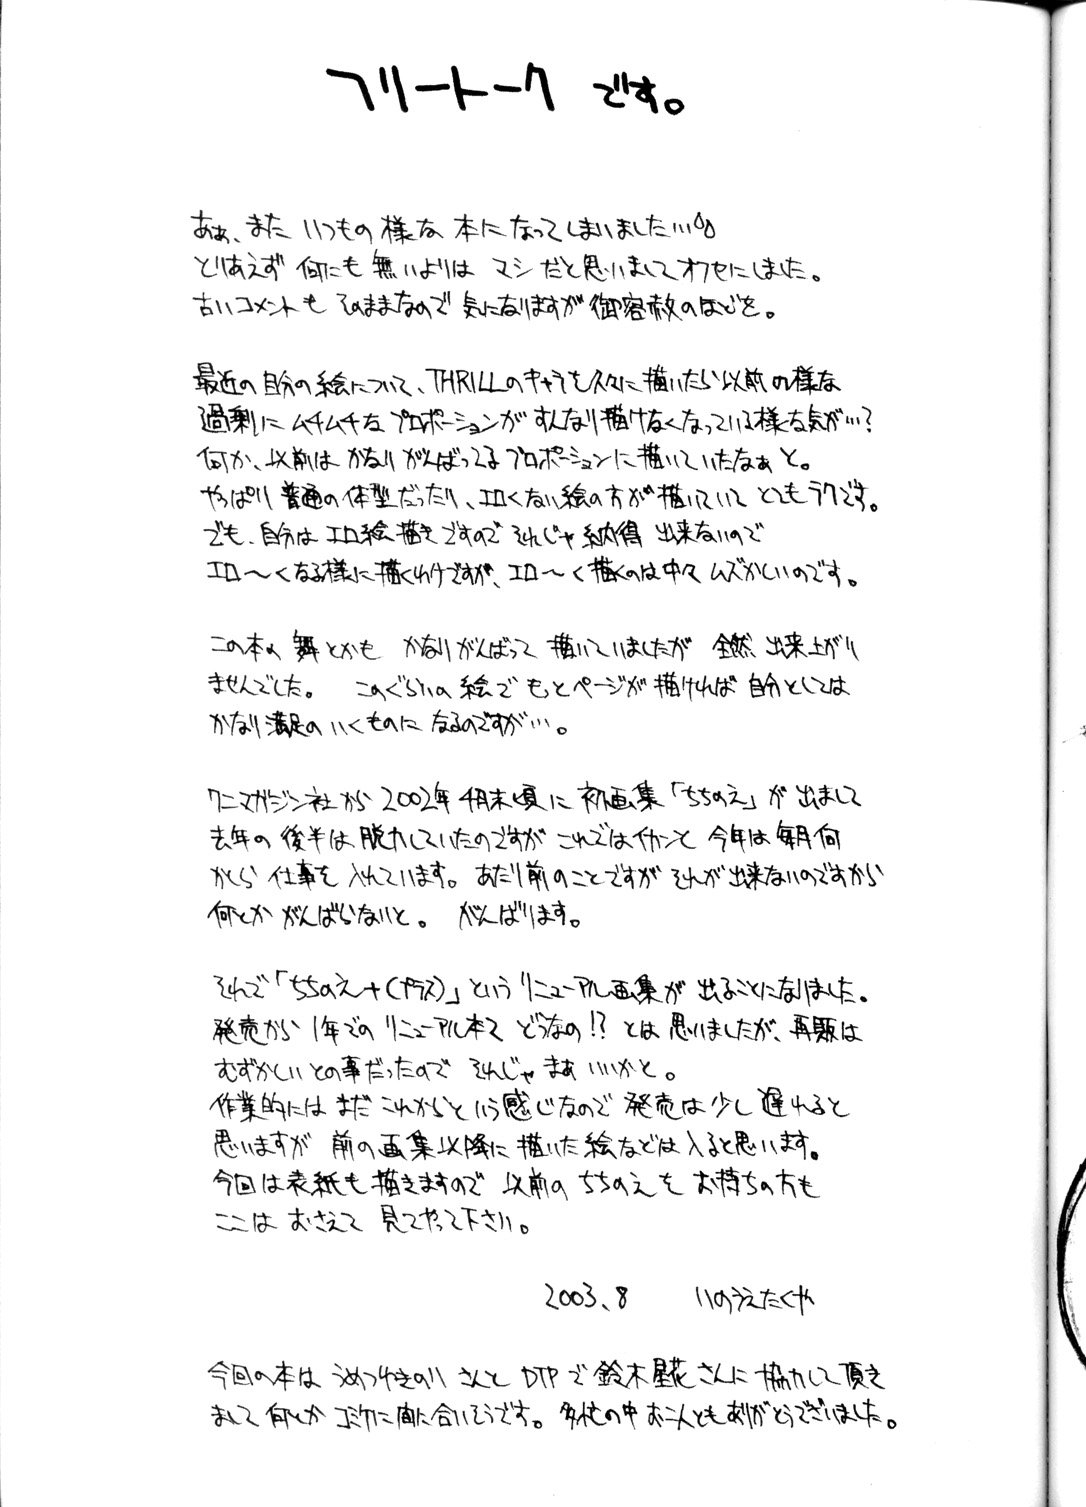 フリートークです。
あぁ、また いつもの様な 本になってしまいました…
とりあえず 何にも無いよりは マシだと思いましてオフセにしました。
古いコメントも そのままなので 気になりますが御容赦のほどを。
最近の自分の絵について、THRILLのキャラを久々に描いたら以前の様な
過剰に ムチムチな プロポーションが すんなり描けなくなっている様な気が…?
何か、以前は かなりがんばってるプロポーションに描いていたなぁ と。
やっぱり 普通の体型だったり、エロくない絵の方が 描いていて とてもラクです。
でも、自分は エロ絵描きですので それじゃ納得 出来ないので
エロ〜くなる様に描くわけですが、エロ〜く描くのは中々 ムズかしいのです。
この本の 舞とかも かなりがんばって 描いていましたが 全然 出来上がり
ませんでした。 このぐらいの 絵で もっとページが 描ければ 自分としては
かなり満足の いくものに なるのですが…。
ワニマガジン社から 2002年4月末頃に 初画集「ちちのえ」が 出まして
去年の後半は脱力していたのですが これではイカンと 今年は 毎月何
かしら 仕事を 入れています。あたり前のことですが それが出来ないのですから
何とか がんばらないと。 がんばります。
それで「ちちのえ+(プラス)」というリニューアル画集が 出ることになりました。
発売から 1年での リニューアル本て どうなの!? とは 思いましたが、再販は
むずかしいとの事だったので それじゃ まあ いいかと。
作業的には まだ これからという感じなので 発売は少し遅れると
思いますが 前の画集以降に描いた絵などは入ると思います。
今回は表紙も描きますので 以前のちちのえを お持ちの方も
ここは おさえて 見てやって下さい。
2003、8 いのうえたくや
今回の本は うめつゆきのり さんと DTPで鈴木星花さんに協力して頂き
まして何とか コミケに間に合いそうです。多忙の中お二人ともありがとうございました。